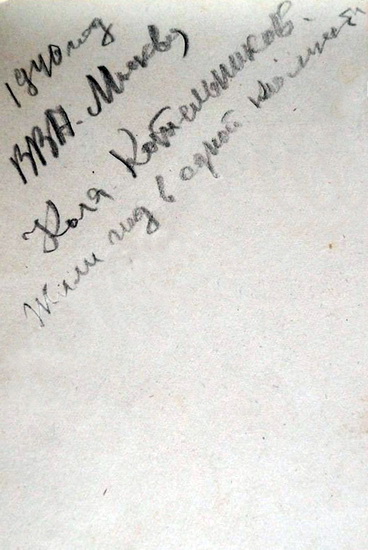 1940 год
ВВА. Москва
Коля Котельников.
Жили год в одной комнате